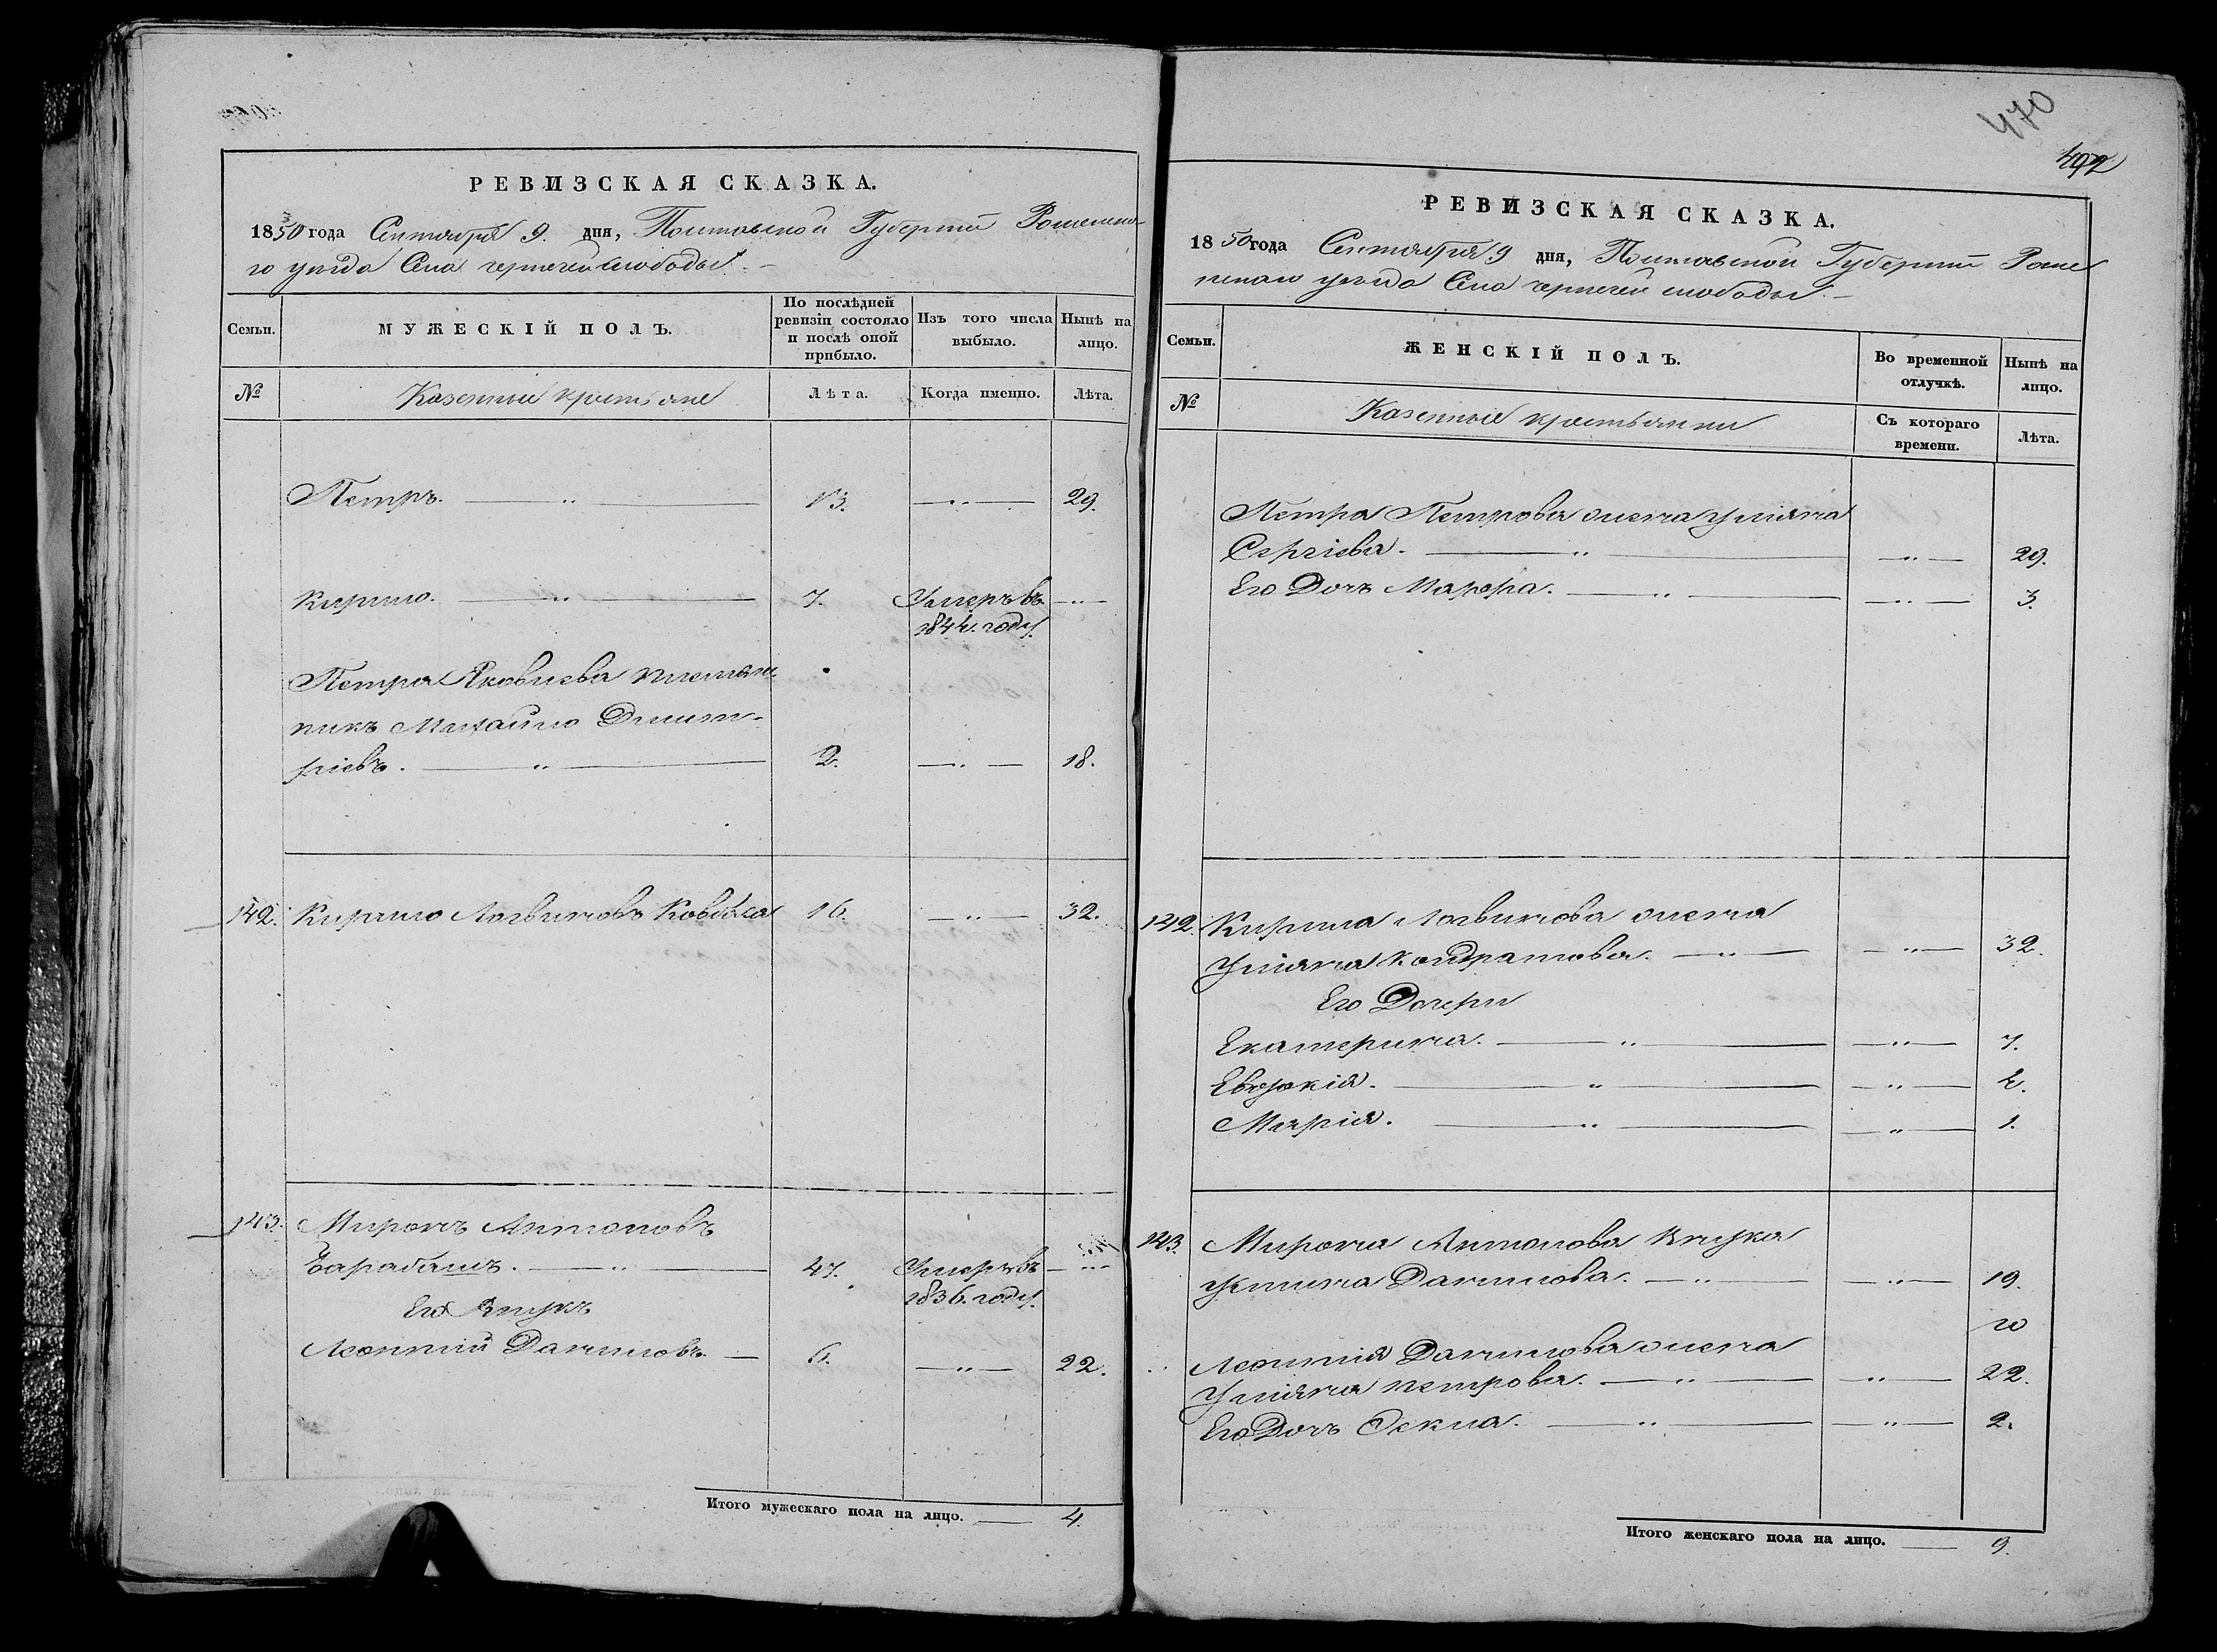 РЕВИЗСКАЯ СКАЗКА.
1850 года Сентября 9. дня, Полтавской Губернии Роменска-
го уезда Села чернечей слободы. —
Семьи. МУЖЕСКІЙ ПОЛЪ. По послѣдней ревизіи состояло и послѣ оной прибыло. Изъ того числа выбыло. Нынѣ на лицо.
№ Казенные крестьяне Лѣта. Когда именно. Лѣта.
Петръ. — „ — 13. — „ — 29.
Кирило. — „ — 7. Умеръ въ — „ —
1844. году.
Петра Яковлева племян-
никъ Михайло Дмит-
ріевъ. — „ — 2. — „ — 18.
142. Кирило Логвиновъ 16. — „ — 32.
143. Миронъ Антоновъ
Барабашъ. — „ — 47. Умеръ въ — „ —
1836. году.
Его Внукъ
Леонтий Даниловъ. — 6. — „ — 22.
Итого мужескаго пола на лицо. — 4.
470
492
РЕВИЗСКАЯ СКАЗКА.
1850 года Сентября 9 дня, Полтавской Губернии Роме
нскаго уезда Села чернечей слободы. —
Семьи. ЖЕНСКІЙ ПОЛЪ. Во временной отлучкѣ. Нынѣ на лицо.
№ Казенные крестьянки Съ котораго времени. Лѣта.
Петра Петрова жена Уліяна
Сергіева. — „ — — „ — 29.
Его Дочь Марфа. — „ — — „ — 3.
142. Кирила Логвинова жена
Уліяна Кондратова. — „ — — „ — 32.
Его Дочери
Екатерина. — „ — — „ — 7.
Евдокія. — „ — — „ — 4.
Марія. — „ — — „ — 1.
143. Мирона Антонова Внука
Устина Данилова. — „ — — „ — 19.
Леонтія Данилова жена
Уліяна Петрова. — „ — — „ — 22.
Его Дочь Фекла. — „ — — „ — 2.
Итого женскаго пола на лицо. — 9.